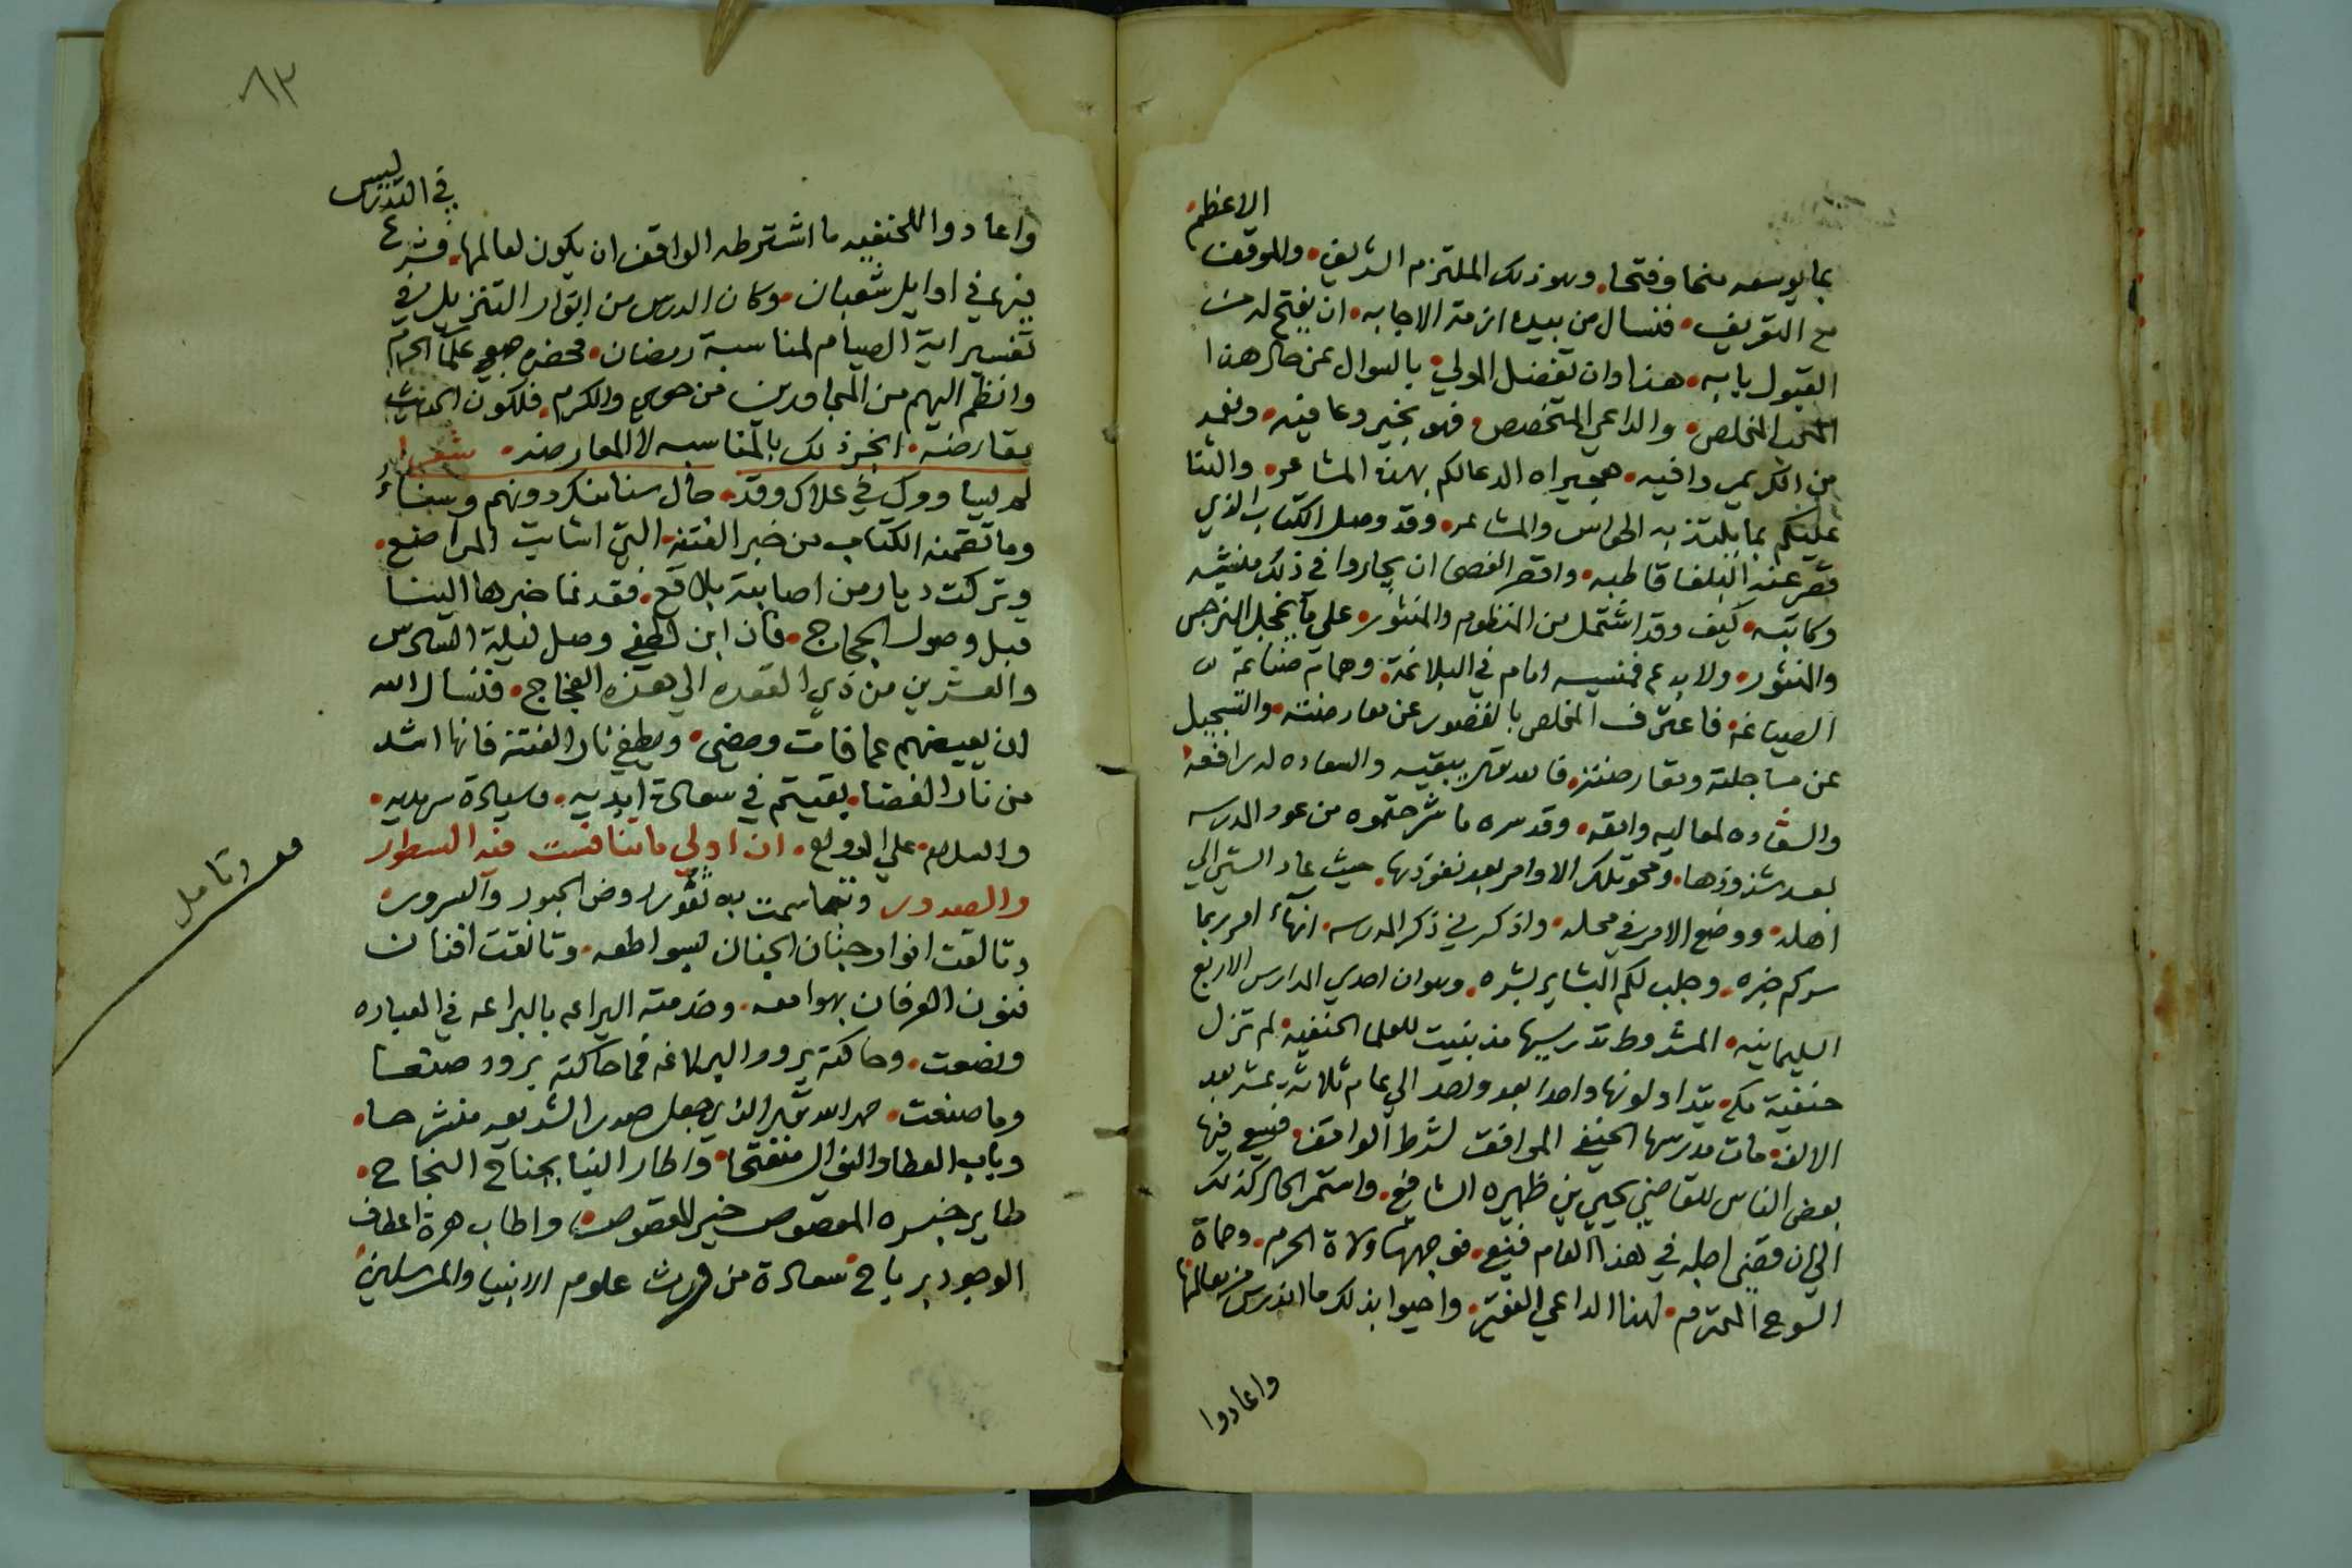 الاعظم
بما يوسعه منحا وفتحا. وهو ذلك الملتزم الشريف. والموقف
مع التعريف. فنسال من بيده ازمة الاجابه. ان يفتح له من
القبول بابه. هذا وان تفضل المولي. بالسوال عن حال هذا
المحب المخلص. والداعي المتخصص. فهو بخير وعافيه. ونعم
من الكريم وافيه. هجيراه الدعا لكم بهذه المشاعر. والثنا
عليكم بما يلتذ به الحواس والمشاعر. وقد وصل الكتاب الذي
قصر عنه البلغا قاطبه. واقصر الفصحا ان يجاروا في ذلك منشيه
وكاتبه. كيف وقد اشتمل من المنظوم والمنثور. علي ما يخجل النرجس
والمنثور. ولا بدع فمنشيه امام في البلاغة. وهمام صناعته
الصياغه. فاعترف المخلص بالقصور عن معارضته. والتسجيل
عن مساجلته ومقارضته. فالله تعالى يبقيه والسعاده له مرافقه
والسياده لمعاليه وامقه. وقد سره ما شرحتموه من عود المدرسه
بعد شذوذها. ومحو تلك الاوامر بعد نفوذها. حيث عاد الشي الي
اهله. ووضع الامر في محله. واذكرني ذكر المدرسه. انهاء امر ربما
سركم خبره. وجلب لكم البشاير بشره. وهو ان احدي المدارس الاربع
السليمانيه. المشروط تدريسها مذ بنيت للعلما الحنفيه. لم تزل
حنفية مكه يتداولونها واحدا بعد واحد الي عام ثلاثة عشر بعد
الالف. مات مدرسها الحنفي الموافقت لشرط الواقف. فسعي فيها
بعض الناس للقاضي يحيي بن ظهيره الشافعي. واستمر الحال كذلك
الي ان قضي اجله في هذا العام فسعي. فوجهها ولاة الحرم. وحماة
السوح المحترم. لهذا الداعي الفقير. واحيوا بذلك ما اندرس من معالمها
واعادوا
٨٣
في التدريس
واعادوا للحنفيه ما اشترطه الواقف ان يكون لعالمها. فشرع
فيها في اوايل شعبان. وكان الدرس من انوار التنزيل في
تفسير اية الصيام لمناسبة رمضان. فحضر جميع علما الحرم
وانظم اليهم من المجاورين من حوي والكرم. فلكون الحديث
مقارضه. انجر ذلك بالمناسبه لا المعارضه. شعر
لم يساووك في علاك وقد. حال سنا منك دونهم وسناء
وما تضمنه الكتاب من خبر الفتنه. التي اشابت المراضع.
وتركت ديار من اصابته بلاقع. فقد نما خبرها الينا
قبل وصول الحجاج. فان ابن لطفي وصل ليلة السادس
والعشرين من ذي القعده الي هذه الفجاج. فنسال الله
ان يعيضهم عما فات ومضي. ويطفي نار الفتنه فانها اشد
من نار الغضا. بقيتم في سعادة ابديه. وسيادة سرمديه.
والسلام. علي الدوام. ان اولي ما تنافست فيه السطور
والصدور وتباسمت به ثغور روض الحبور والسرور
وتالقت انوار جنان الجنان بسواطعه. وتانقت افنان
فنون العرفان بهوامعه. وخدمته اليراعه بالبراعه في العباره
ونصعت. وحاكته برود البلاغه فما حاكته برود صنعا
وما صنعت. حمد الله تعالى الذي جعل صدر الشريعه منشرحا.
وباب العطا والنوال منفتحا. واطار الينا بجناح النجاح.
طاير خبره المقصوص خير للمقصوص. واطاب هزة اعطاف
الوجود برياح سعادة من ورث علوم الانبيا والمرسلين
وتامل